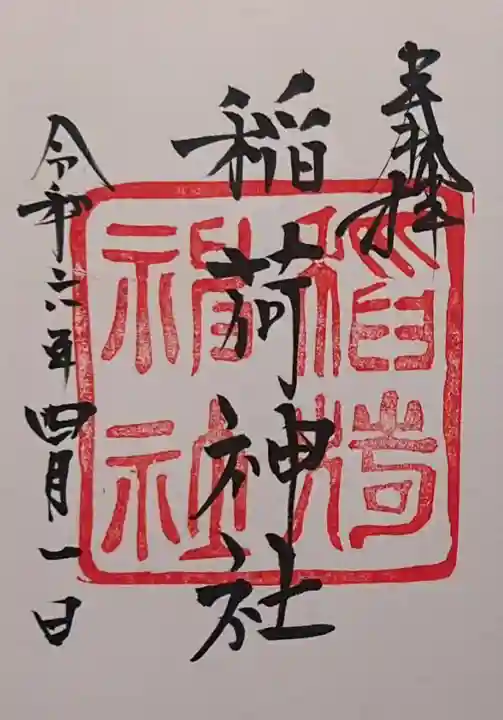 奉拝
稲荷神社
令和六年四月一日
稲荷
神社